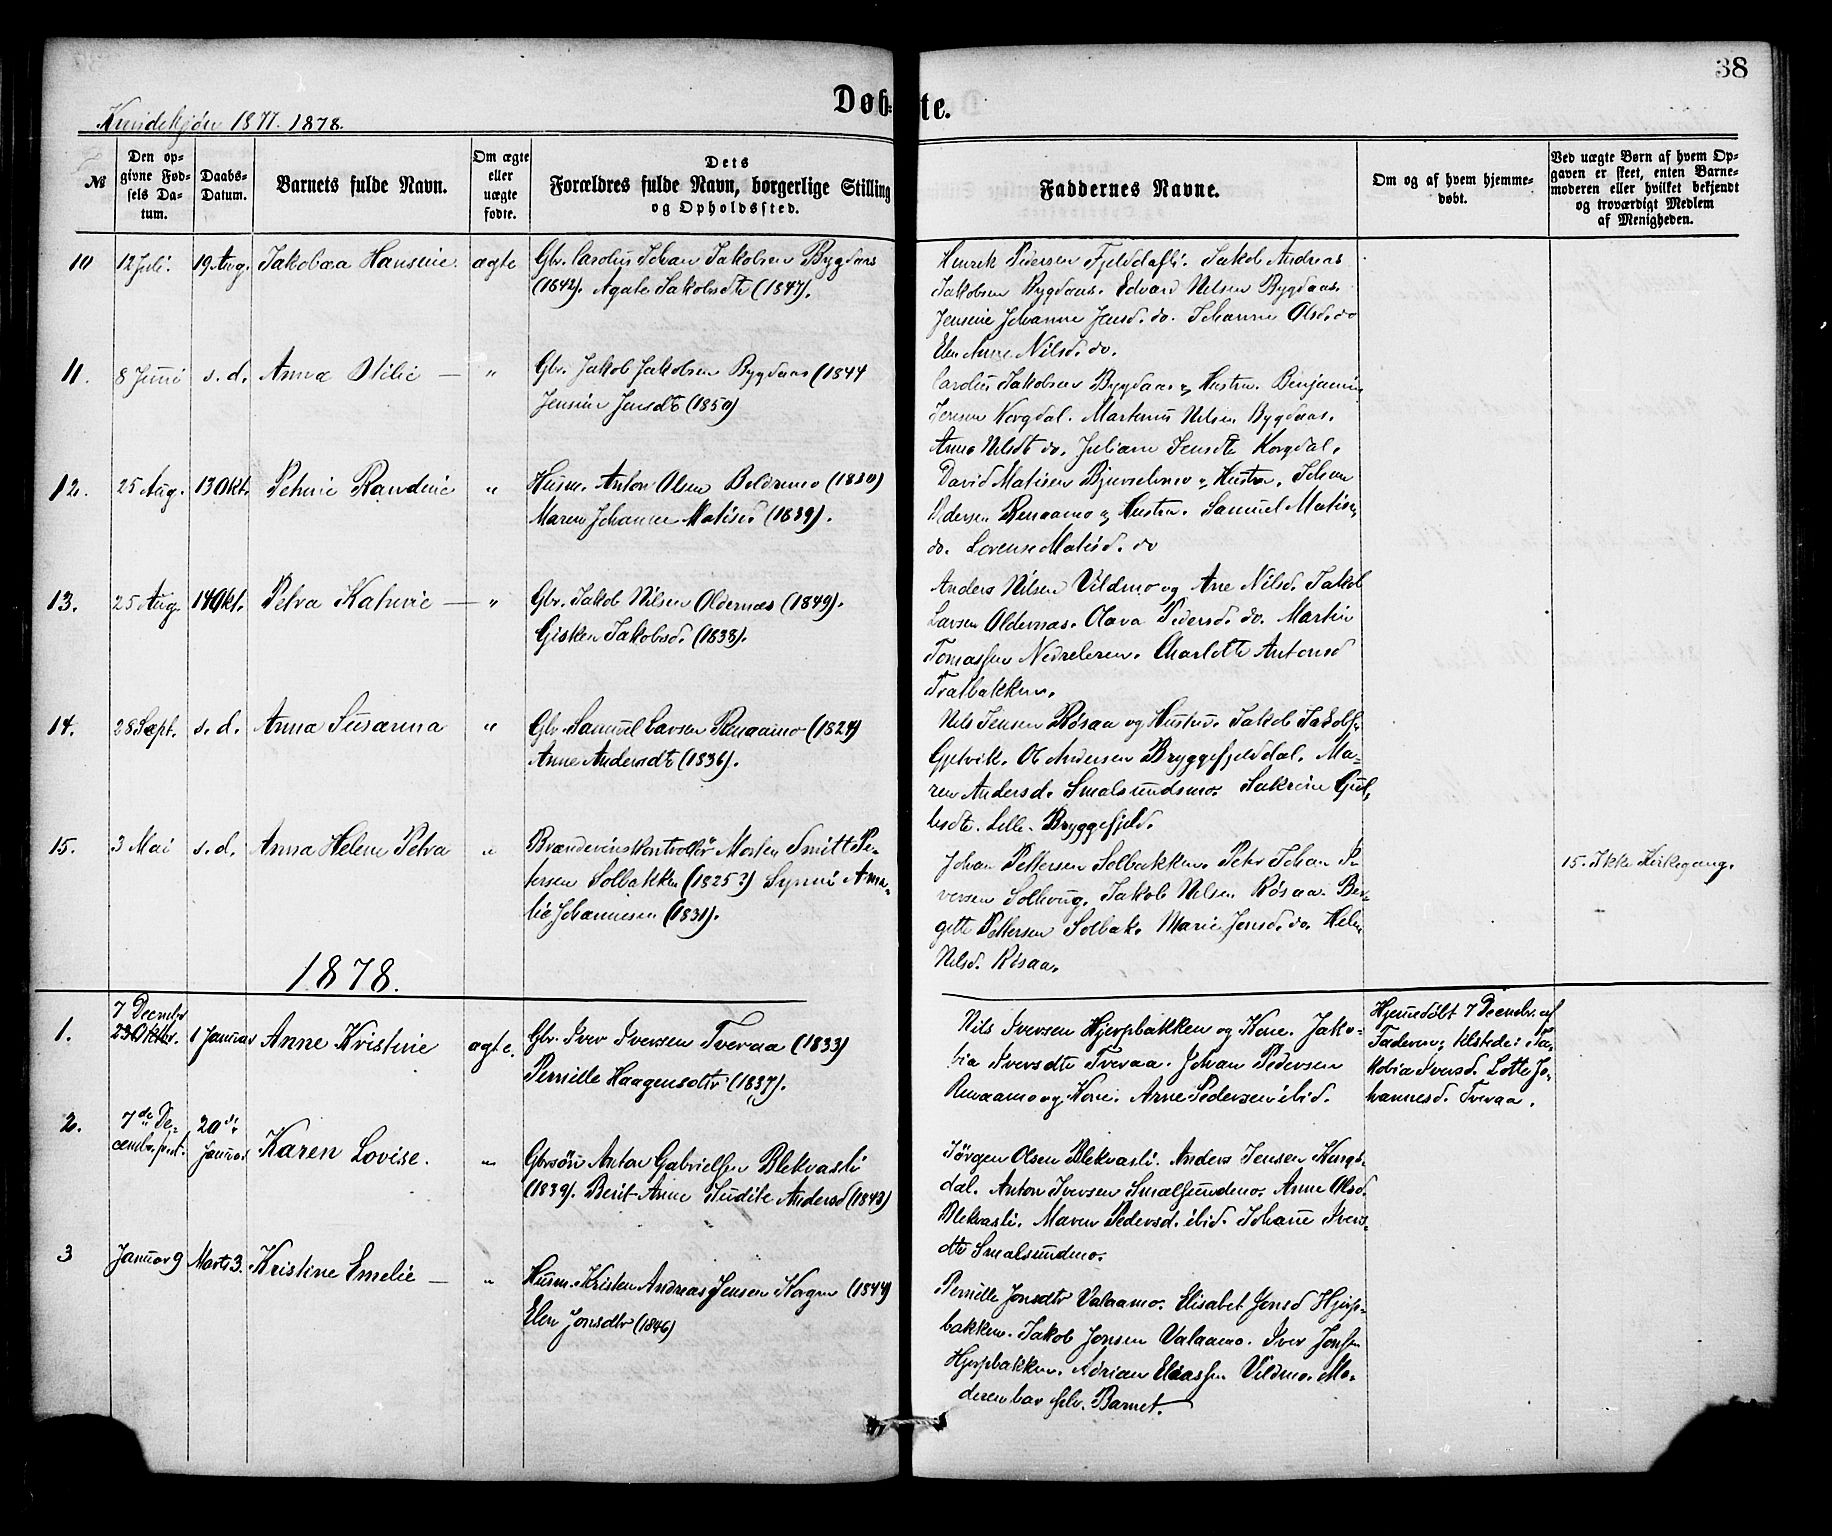 38
Døb-te.
Kvindekjøn 1877. 1878.
№
Den opgivne Fødsels Datum.
Daabs-Datum.
Barnets fulde Navn.
Om ægte eller uægte fødte.
Dets Forældres fulde Navn, borgerlige Stilling og Opholdssted.
Faddernes Navne.
Om og af hvem hjemmedøbt.
Ved uægte Børn af hvem Opgaven er skeet, enten Barnemoderen eller hvilket bekjendt og troværdigt Medlem af Menigheden.
10 12 Juli. 19 Aug. Jakobæa Hansine. ægte
Gbr. Carolus Johan Jakobsen Bygdaas
(1842). Agate Jakobsdt (1847).
Henrik Pedersen Fjelddalsli. Jakob Andreas
Jakobsen Bygdaas. Edvard Nilsen Bygdaas.
Jensine Johanne Jensd. do. Johanne Olsd. do
Elen Anne Nilsd. do.
11. 8 Juni s. d. Anna Otilie — "
Gbr. Jakob Jakobsen Bygdaas (1844
Jensine Jensdt (1850)
Carolus Jakobsen Bygdaas og Hustru. Benjamin
Jensen Korgdal. Markus Nilsen Bygdaas.
Anne Nilsdt do. Juliane Jensdt Korgdal.
12. 25 Aug. 13 Okt. Petrine Randine "
Husm. Anton Olsen Boldermo (1830)
Maren Johanne Matisd (1839).
David Matisen Bjurselvmo og Hustru. Johan
Pedersen Renaamo og Hustru. Samuel Matisen
do. Lorense Matisd. do
13. 25 Aug. 14 Okt. Petra Katrine — "
Gbr. Jakob Nilsen Oldernæs (1849).
Gisken Jakobsd. (1838).
Anders Nilsen Vildmo og Ane Nilsd. Jakob
Larsen Oldernæs. Olava Pedersd. do. Martin
Tomassen Nedreleren. Charlotte Antonsd
Tralbakken.
14. 28 Sept. s. d. Anna Susanna "
Gbr. Samuel Larsen Renaamo (1824)
Anne Andersdt (1836).
Nils Jensen Røsaa og Hustru. Jakob Jakobs.
Gjelvik. Ol Andersen Bryggefjelddal. Ma-
ren Andersd. Smalsundmo.
lsdt. Lille-Bryggefjeld.
15. 3 Mai s. d. Anna Helene Petra "
Brændevinskontrollør Morten Smitt Pe-
tersen Solbakken (1825?) Synnøve Ama-
lia Johannesen (1831).
Johan Pettersen Solbakken. Petr Johan
Jakob Nilsen Røsaa. Ber-
gitte Pettersen Solbak. Marie Jonsd. do. Helen
Nilsd. Røsaa.
15. Ikke Kirkegang.
1878.
1. 7 Decembr
23 Oktbr. 1 Januar Anne Kristine ægte.
Gbr. Iver Iversen Tveraa (1833)
Pernille Haagensdtr (1837).
Nils Iversen Hjerpbakken og Kone. Jako-
bia Iversdtr Tveraa. Johan Pedersen
Renaamo og Kone. Arne Pedersen ibid.
Hjemmedøbt 7 Decembr. af
Faderen; tilstede: Ja-
kobia Iversd. Lotte Jo-
hannesd. Tveraa.
2. 7de De-
cembr. 20de
Januar Karen Lovise. "
Gbrsøn Anton Gabrielsen Blekvasli
(1839). Berit Anne Judite Andersd (1843)
Jørgen Olsen Blekvasli. Anders Jensen Korg-
dal. Anton Iversen Smalsundmo. Anne Olsd.
Blekvasli. Maren Pedersd. ibid. Johanne Ivers-
dtr Smalsundmo.
3 Januar 9 Marts 3. Kristine Emelie — "
Husm. Kristen Andreas Jensen Korgen (1844)
Elen Jonsdtr (1846)
Pernille Jonsdtr Valaamo. Elisabet Jonsd Hjerp-
bakken. Jakob Jonsen Valaamo. Iver Jonsen
Hjerpbakken. Adrian Eliassen Vildmo. Mo-
deren bar selv Barnet.